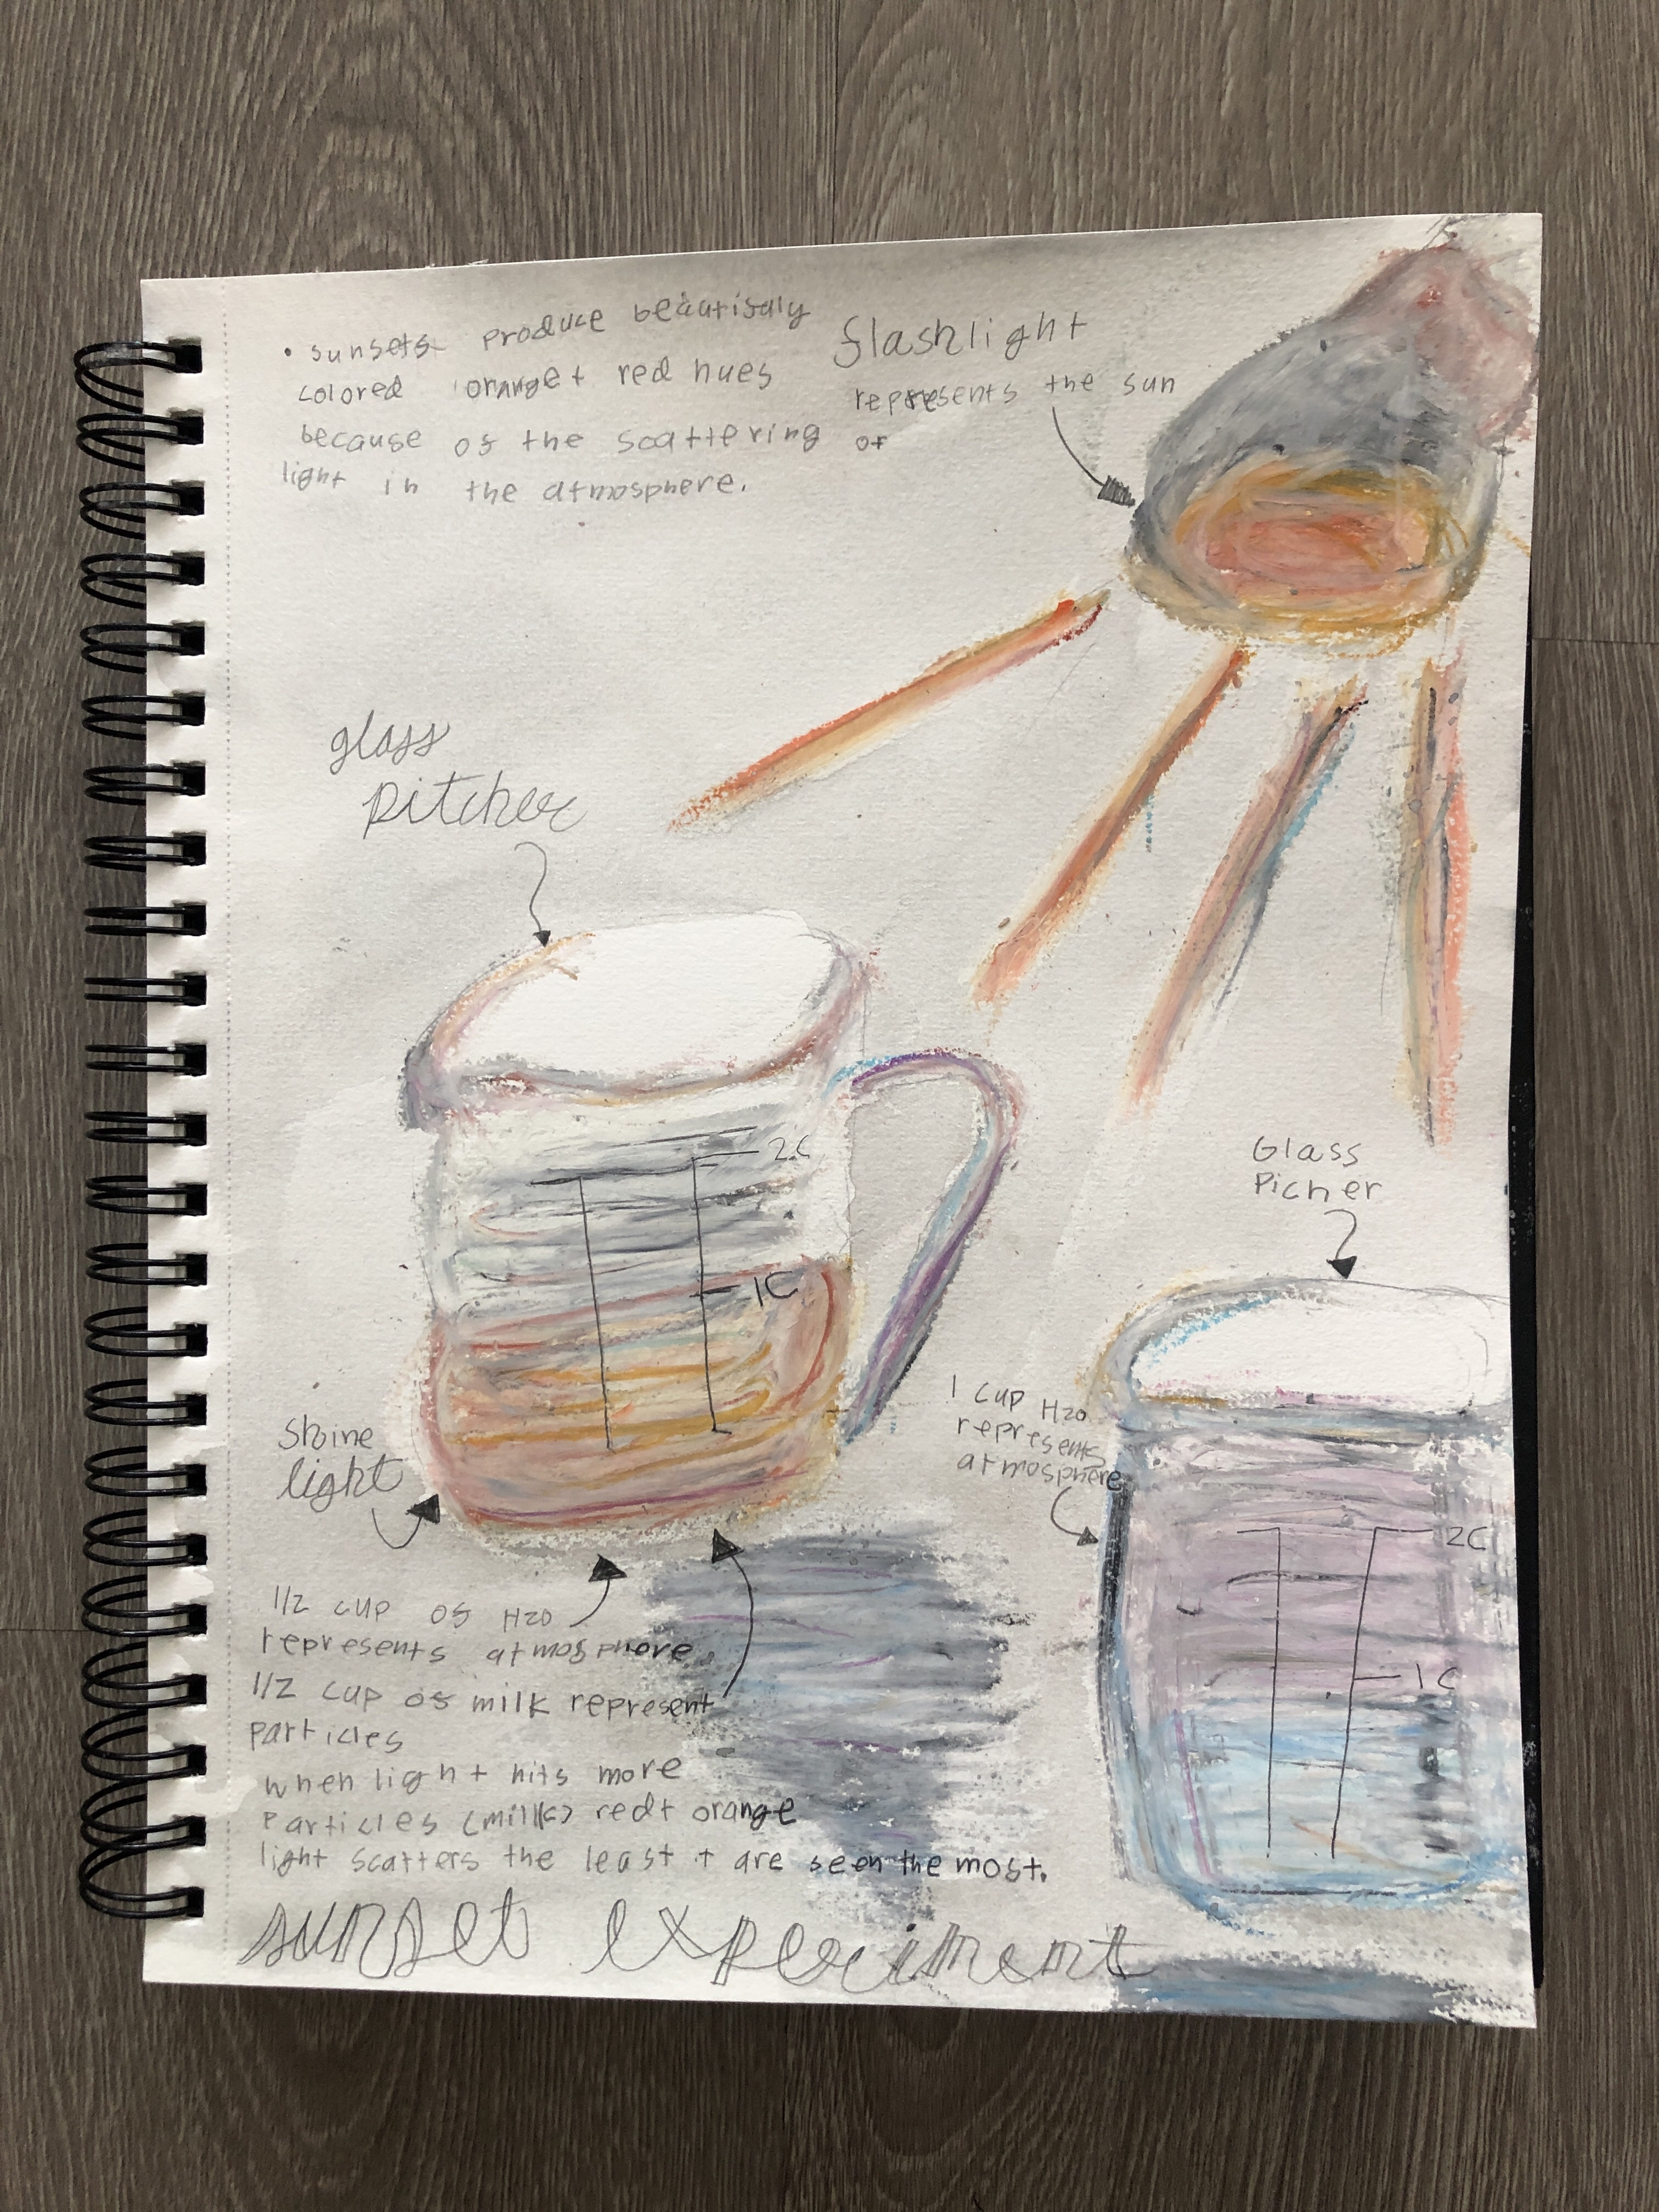 • sunsets produce beautifuly
colored orange + red hues
because of the scattering of
light in the atmosphere.
flashlight
represents the sun
glass
pitcher
2C
1C
Glass
Picher
1 cup H2O
represents
atmosphere
2C
1C
shine
light
1/2 cup of H2O
represents atmosphere
1/2 cup of milk represent
particles
when light hits more
particles (milk) red + orange
light scatters the least + are seen the most.
sunset experiment